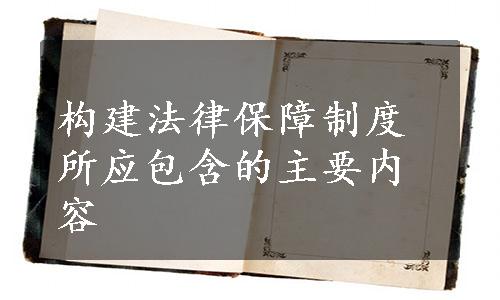 构建法律保障制度
所应包含的主要内
容